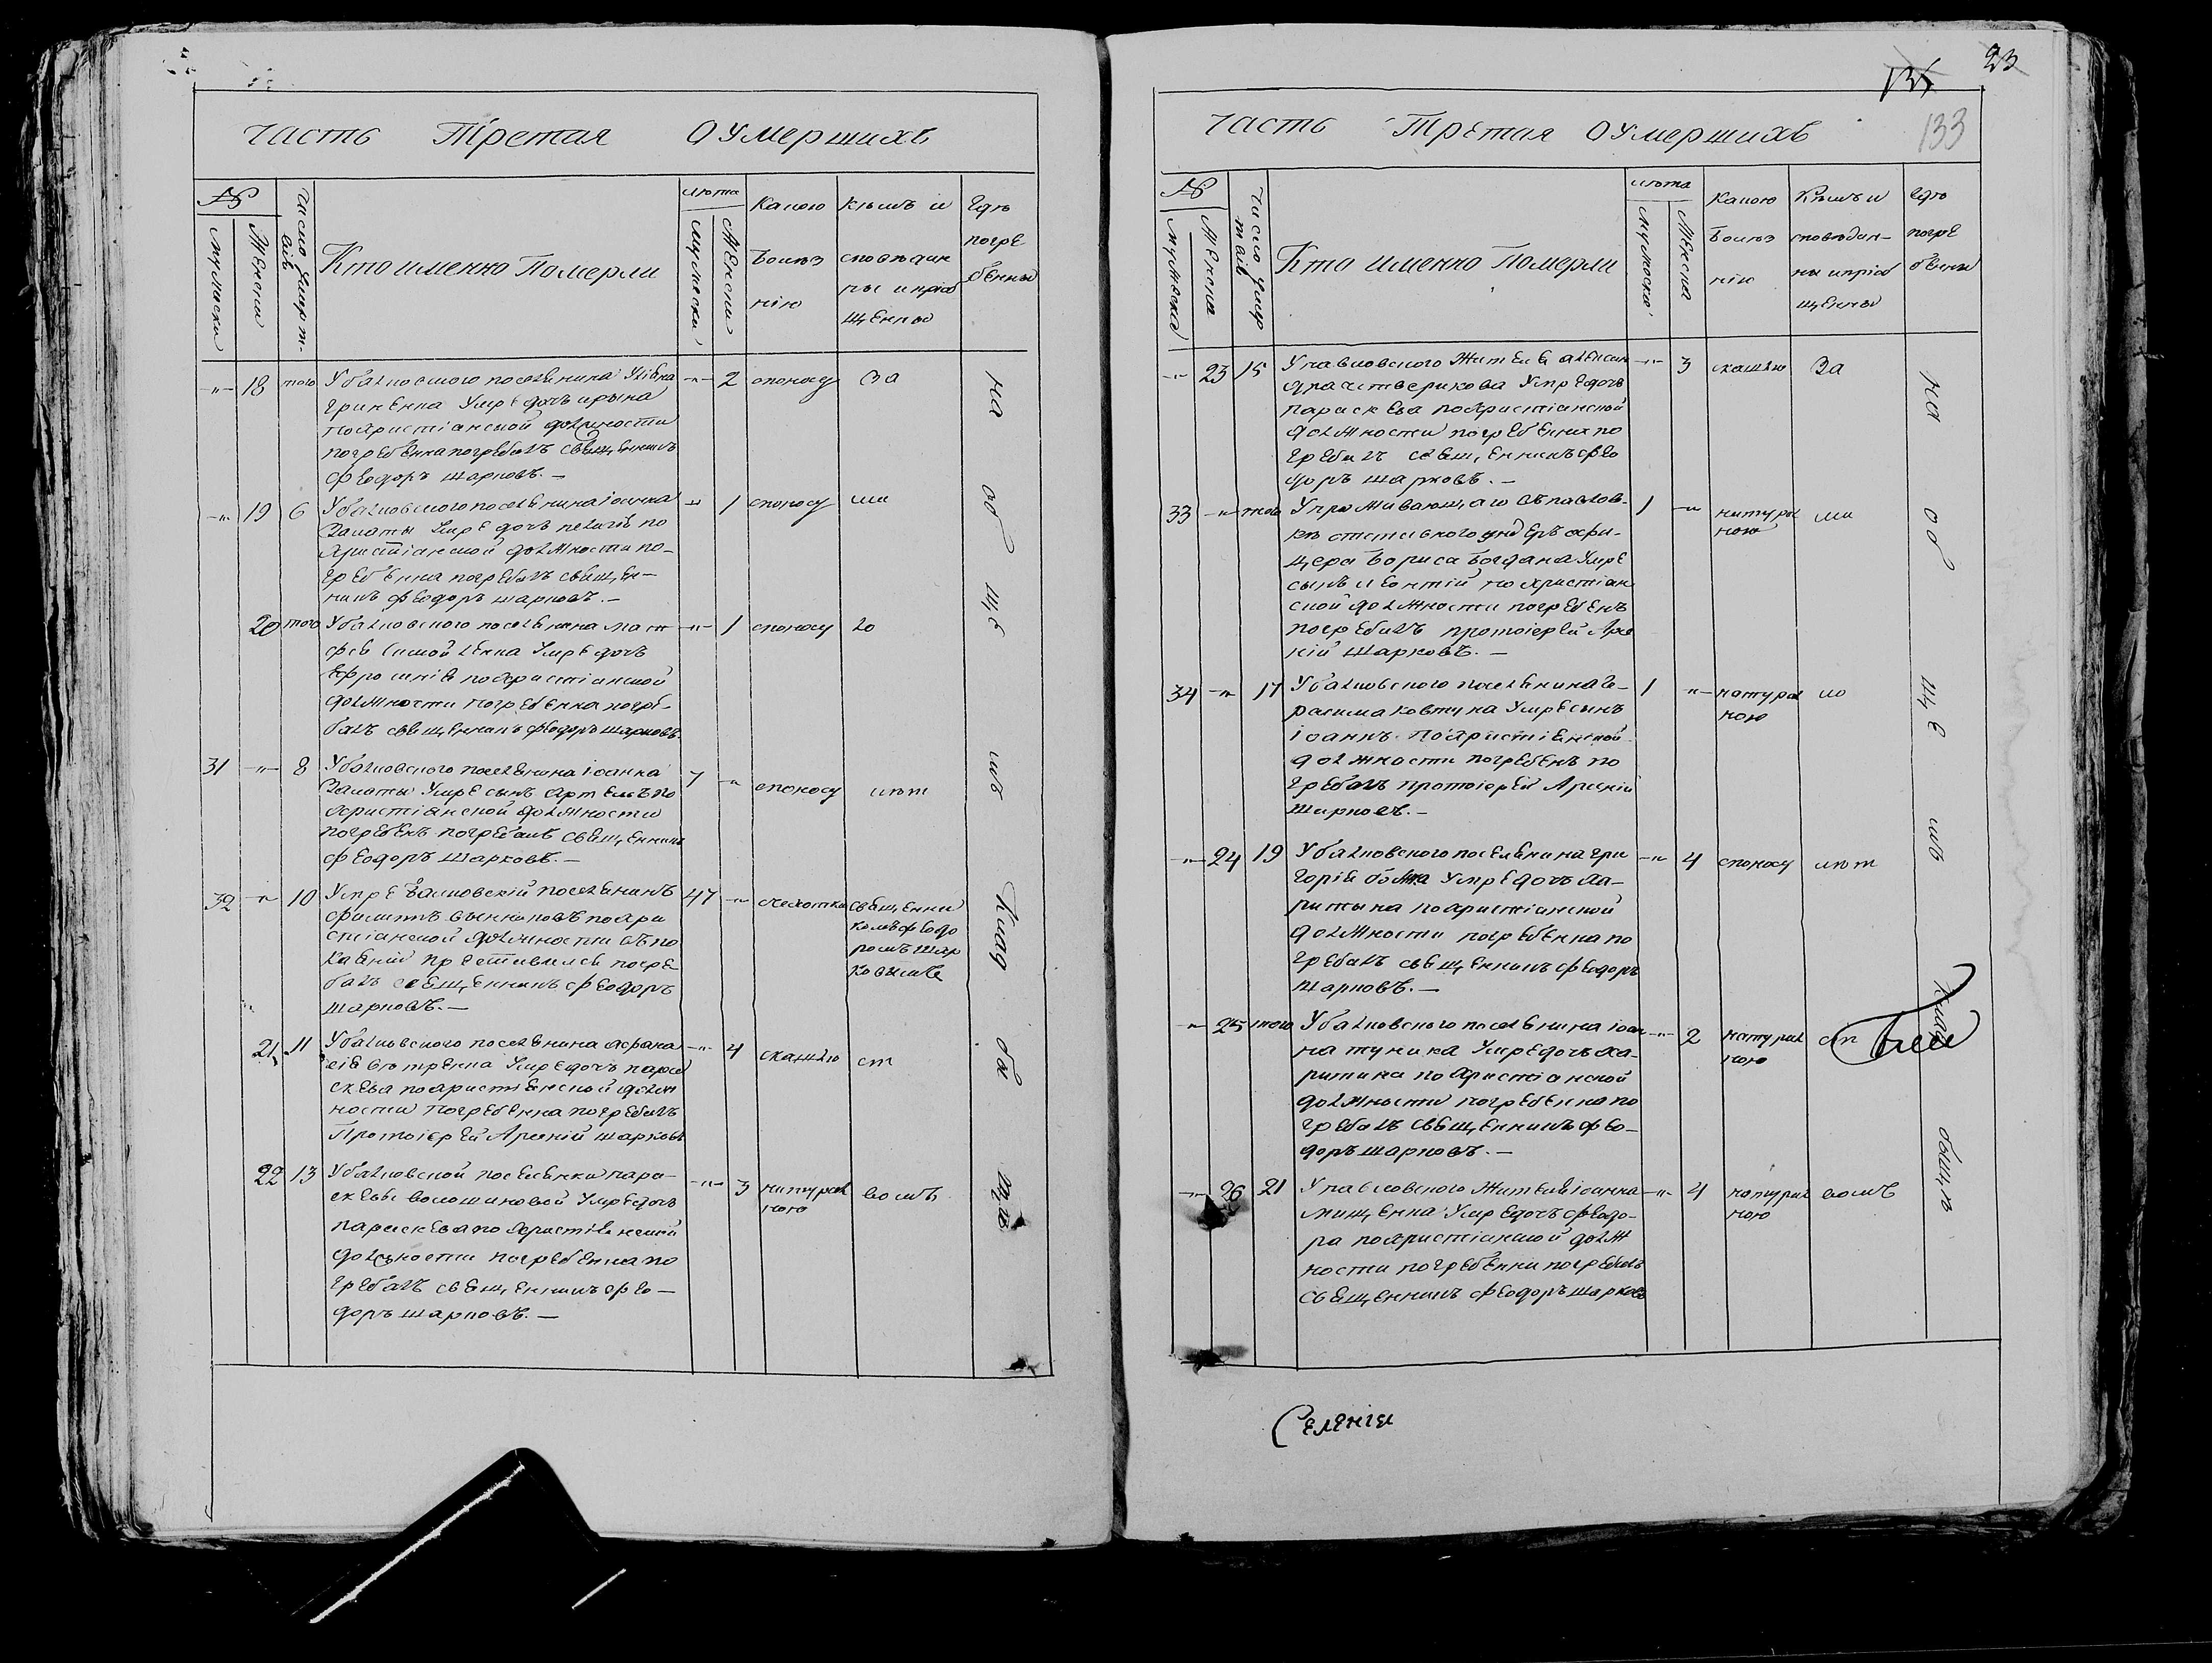 часть Третая О Умершихъ
№
мужески
женски
число умерт-
вій
Кто именно Померли
лѣта
мужески
женски
Какою
болѣз
нію
Кѣмъ и
сповѣдан
ны и пріоб
щенны
Гдѣ
погре
бенны
18 того
У балковского поселянина
Гриценка Умре дочь ирына
по христіанской должности
погребенна погребалъ священникъ
феодоръ шарковъ.
2 споносу за
19 6
У балковского поселянина іоанна
Залоты Умре дочь пелагія по
христіанской должности по-
гребенна погребалъ священ-
никъ феодоръ шарковъ.
1 споносу ма
20 того
У балковского поселянина мат
фея Умре дочь
Ефросинія по христіанской
должности погребенна погре-
балъ священникъ феодоръ шарковъ
1 споносу ло
31 8
У балковского поселянина іоанна
Залоты Умре сынъ артемъ по
христіанской должности
погребенъ погребалъ священникъ
феодоръ шарковъ.
7 споносу лѣт
32 10
Умре балковскій поселянинъ
филиппъ по хри
стіанской должности въ по
каяніи преставился погре
балъ священникъ феодоръ
шарковъ.
47 чехотки
священни
комъ феодо
ромъ шар
ковымъ
21 11
У балковского поселянина афана
сія Умре дочь пара
скева по христіянской долж
ности погребенна погребалъ
Протоіерей Арсеній шарковъ
4 скашлю ст
22 13
У балковской поселенки пара-
скевы волошиновой Умре дочь
параскева по христіянской
должности погребенна по
гребалъ священникъ фео-
доръ шарковъ.
3 натурал
ною
вомъ
на об ще мъ клад бы щѣ
23
133
часть Третая О Умершихъ
№
мужеска
женска
число умер
твій
Кто именно Померли
лѣта
мужеска
женска
Какою
болѣз
нію
Кѣмъ и
сповѣдан-
ны и пріоб
щенны
гдѣ
погре
бенны
23 15
У павловского Жителя алексан
дра четверикова Умре дочь
параскева по христіанской
должности погребенна по
гребалъ священникъ фео
доръ шарковъ.
3 скашлю За
33 того
У проживающаго въ павлов-
кѣ отставного ундеръ офи-
цера Бориса Богдана Умре
сынъ леонтій по христіан
ской должности погребенъ
погребалъ протоіерей Арсе
ній Шарковъ.
1 натурал
ною
ма
34 17
У балковского поселянина Ге-
расима ковтуна Умре сынъ
іоаннъ по христіянской
должности погребенъ по
гребалъ протоіерей Арсеній
Шарковъ.
1 натурал
ною
ло
24 19
У балковского поселянина гри
горія божка Умре дочь ха-
ритына по христіанской
должности погребенна по
гребалъ священникъ феодоръ
шарковъ.
4 споносу лѣт
25 того
У балковского поселянина іоан
на туника Умре дочь ха-
ритина по христіанской
должности погребенна по
гребалъ священникъ фео-
доръ шарковъ.
2 натурал
ною
ст
26 21
У павловского Жителя іоанна
мищенка Умре дочь феодо-
ра по христіанской долж
ности погребенна погребалъ
священникъ феодоръ шарковъ
4 натурал
ною
вомъ
на об ще мъ клад быщѣ
Селенія